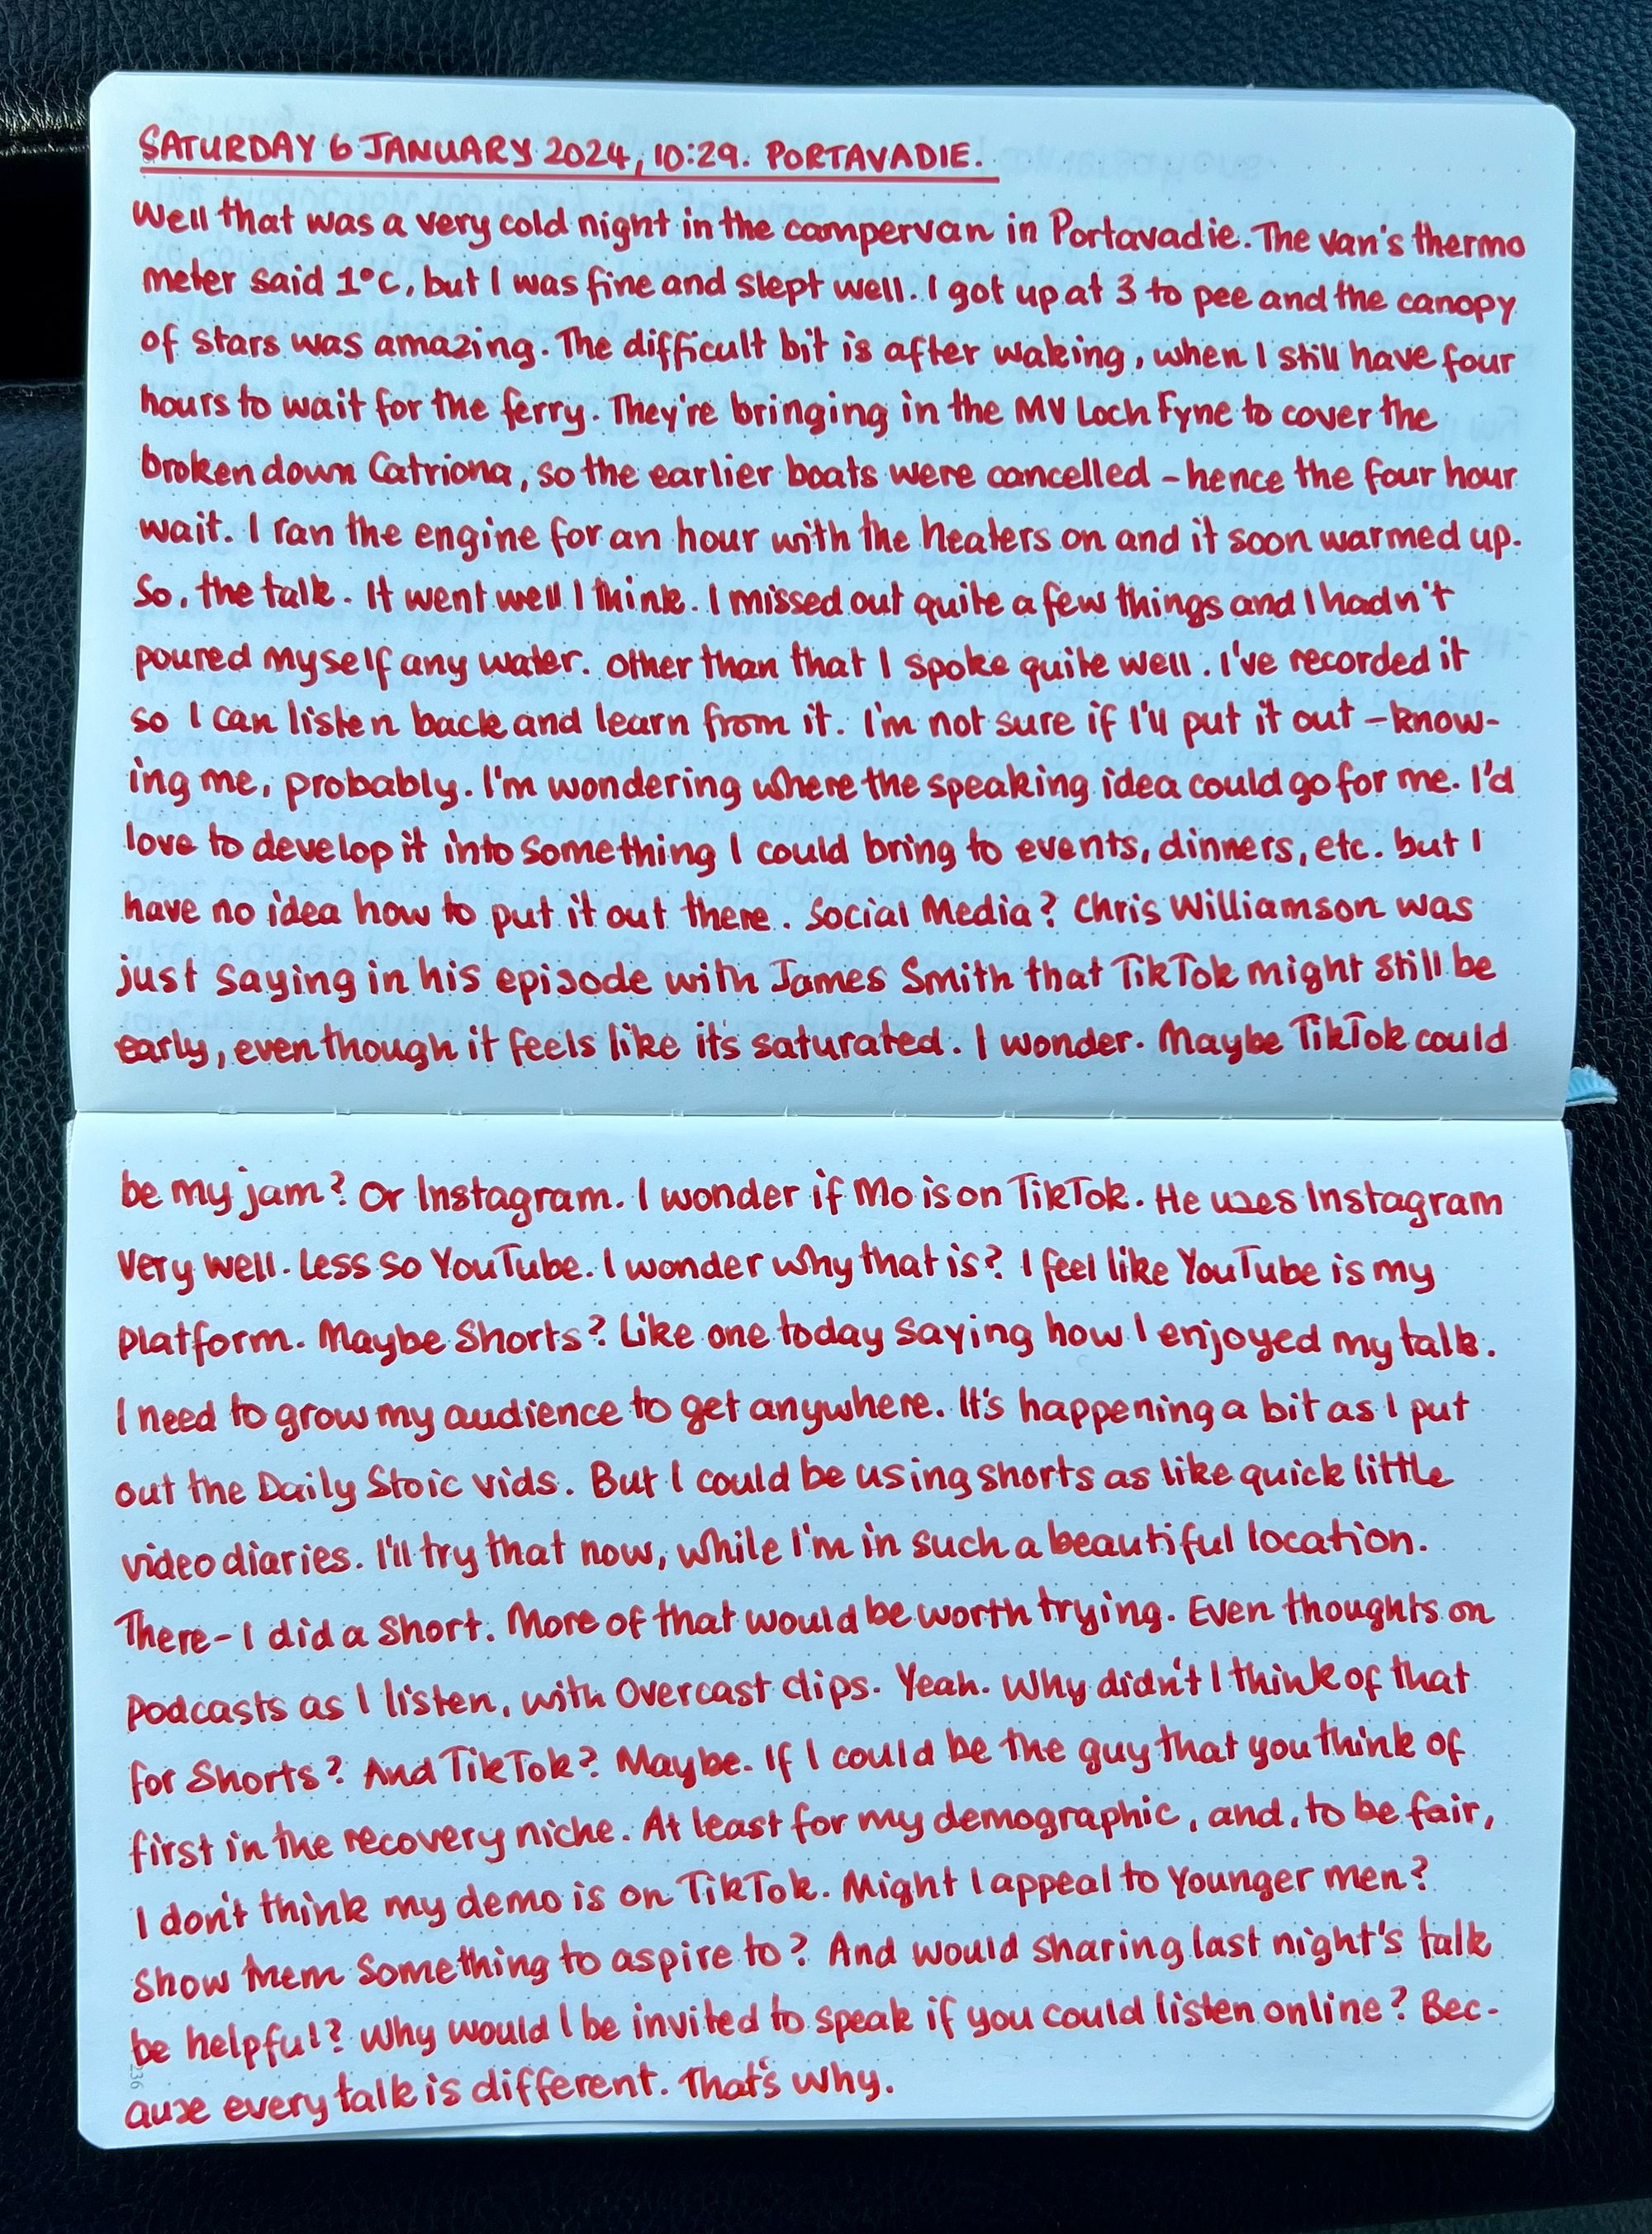 SATURDAY 6 JANUARY 2024, 10:29. PORTAVADIE.
Well that was a very cold night in the campervan in Portavadie. The van's thermo
meter said 1°C, but I was fine and slept well. I got up at 3 to pee and the canopy
of stars was amazing. The difficult bit is after waking, when I still have four
hours to wait for the ferry. They're bringing in the MV Loch Fyne to cover the
broken down Catriona, so the earlier boats were cancelled - hence the four hour
wait. I ran the engine for an hour with the heaters on and it soon warmed up.
So, the talk. It went well I think. I missed out quite a few things and I hadn't
poured myself any water. Other than that I spoke quite well. I've recorded it
so I can listen back and learn from it. I'm not sure if I'll put it out - know-
ing me, probably. I'm wondering where the speaking idea could go for me. I'd
love to develop it into something I could bring to events, dinners, etc. but I
have no idea how to put it out there. Social Media? Chris Williamson was
just saying in his episode with James Smith that TikTok might still be
early, even though it feels like it's saturated. I wonder. Maybe TikTok could
be my jam? Or Instagram. I wonder if Mo is on TikTok. He uses Instagram
very well. Less so YouTube. I wonder why that is? I feel like YouTube is my
platform. Maybe Shorts? Like one today saying how I enjoyed my talk.
I need to grow my audience to get anywhere. It's happening a bit as I put
out the Daily Stoic vids. But I could be using shorts as like quick little
video diaries. I'll try that now, while I'm in such a beautiful location.
There - I did a Short. More of that would be worth trying. Even thoughts on
podcasts as I listen, with Overcast clips. Yeah. Why didn't I think of that
for Shorts? And TikTok? Maybe. If I could be the guy that you think of
first in the recovery niche. At least for my demographic, and, to be fair,
I don't think my demo is on TikTok. Might I appeal to younger men?
Show them something to aspire to? And would sharing last night's talk
be helpful? Why would I be invited to speak if you could listen online? Bec-
ause every talk is different. That's why.
236